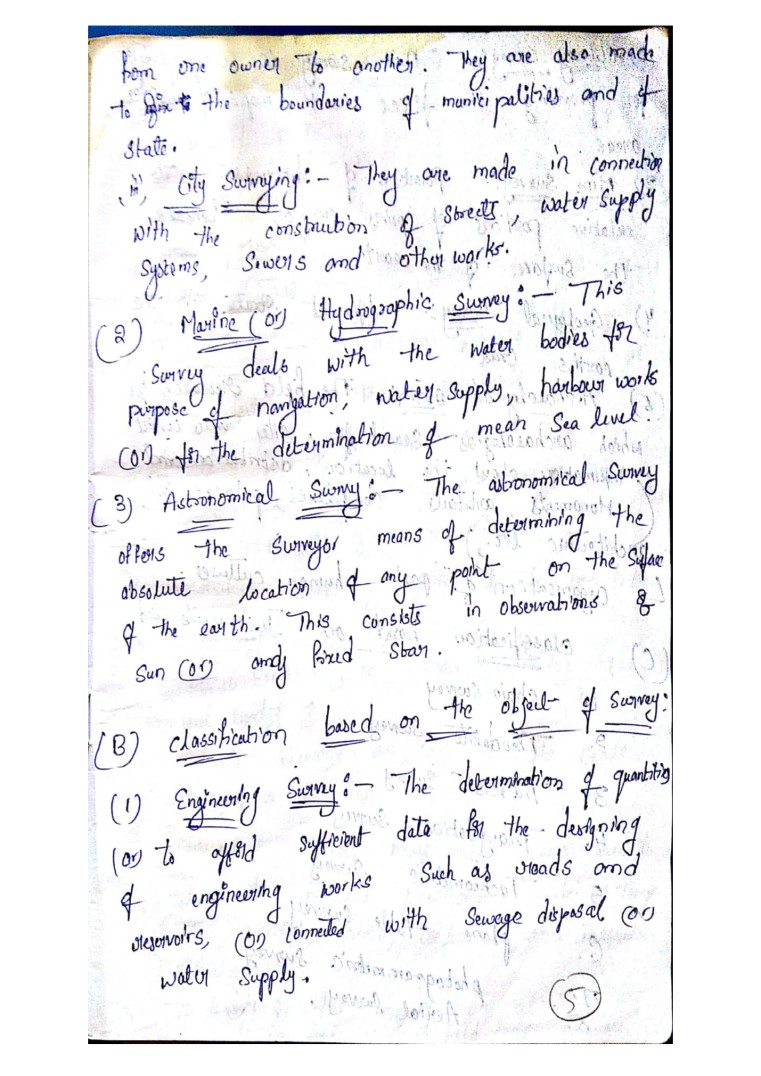 from one owner to another. They are also made
to fix the boundaries of municipalities and of
state.
(iii) City Surveying:- They are made in connection
with the construction of streets, water supply
systems, sewers and other works.
(2) Marine (or) Hydrographic Survey:- This
survey deals with the water bodies for
purpose of navigation, water supply, harbour works
(or) for the determination of mean sea level.
(3) Astronomical Survey:- The astronomical Survey
offers the surveyor means of determining the
absolute location of any point on the surface
of the earth. This consists in observations of
sun (or) any fixed star.
(B) Classification based on the object of Survey:
(1) Engineering Survey:- The determination of quantities
(or) to afford sufficient data for the designing
of engineering works such as roads and
reservoirs, (or) connected with sewage disposal (or)
water supply.
5